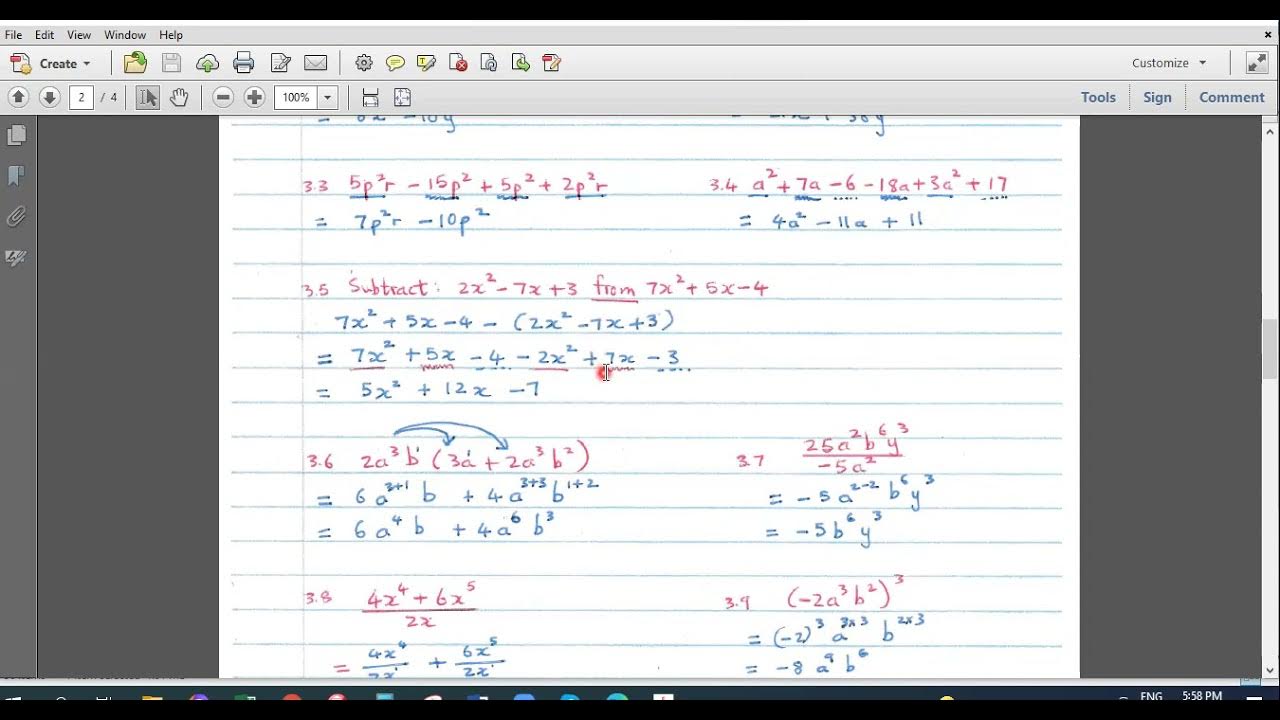 File Edit View Window Help
Create
Customize
2 / 4
100%
Tools Sign Comment
3.3 5p²r - 15p² + 5p² + 2p²r
= 7p²r - 10p²
3.4 a² + 7a - 6 - 18a + 3a² + 17
= 4a² - 11a + 11
3.5 Subtract: 2x² - 7x + 3 from 7x² + 5x - 4
7x² + 5x - 4 - (2x² - 7x + 3)
= 7x² + 5x - 4 - 2x² + 7x - 3
= 5x² + 12x - 7
3.6 2a³b¹(3a¹ + 2a³b²)
= 6a³⁺¹b + 4a³⁺³b¹⁺²
= 6a⁴b + 4a⁶b³
3.7 25a²b⁶y³
-5a²
= -5a²⁻²b⁶y³
= -5b⁶y³
3.8 4x⁴ + 6x⁵
2x
= 4x⁴ + 6x⁵
2x¹ 2x¹
3.9 (-2a³b²)³
= (-2)³ a³ˣ³ b²ˣ³
= -8a⁹b⁶
ENG 5:58 PM